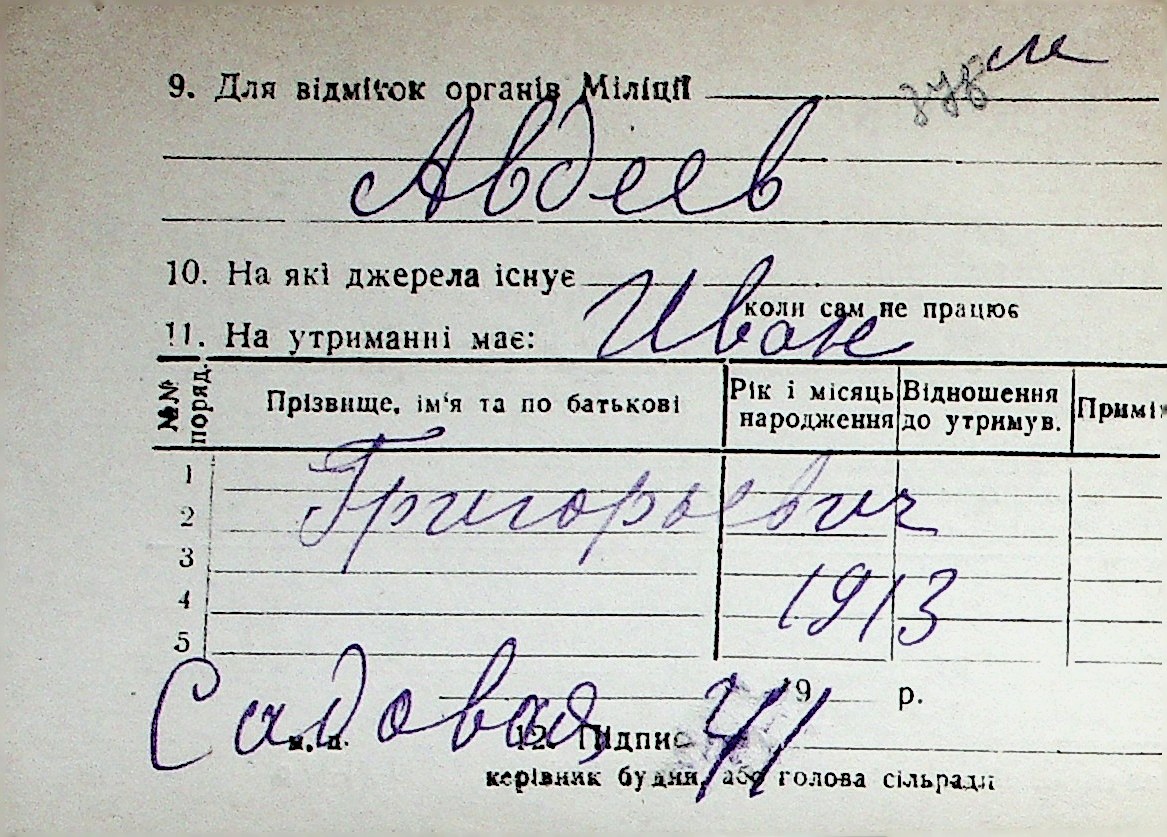 9. Для відміток органів Міліції
Авдеев
10. На які джерела існує
коли сам не працює
Иван
11. На утриманні має:
№№ поряд. Прізвище, ім'я та по батькові Рік і місяць народження Відношення до утримув. Приміт
1
Григорьевич
2
3
4
1913
5
19 р.
Садовая 41
м. п. 12. Підпис
керівник будин, або голова сільради